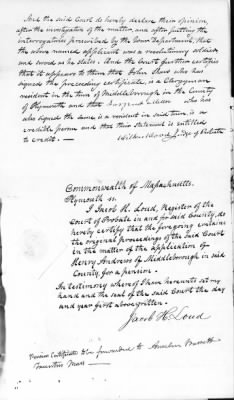 And the said Court do hereby declare their opinion,
after the investigation of the matter, and after putting the
interrogatories prescribed by the War Department, that
the above named applicant was a revolutionary soldier
and served as he states. And the Court further certifies
that it appears to them that John Shaw who has
signed the preceding certificate, is a Clergyman
resident in the town of Middleborough in the County
of Plymouth and that who has
also signed the same, is a resident in said town, is a
credible person and that their statement is entitled
to credit. Wilkes Wood Judge of Probate
Commonwealth of Massachusetts.
Plymouth ss.
I Jacob H. Loud, Register of the
Court of Probate in and for said County, do
hereby certify that the foregoing contains
the original proceedings of the said Court
in the matter of the application of
Henry Andrews of Middleborough in said
County for a pension.
In testimony whereof I have hereunto set my
hand and the seal of the said Court the day
and year first above written.
Jacob H. Loud
Pension Certificate to be forwarded to Anselm Bassett
Taunton Mass